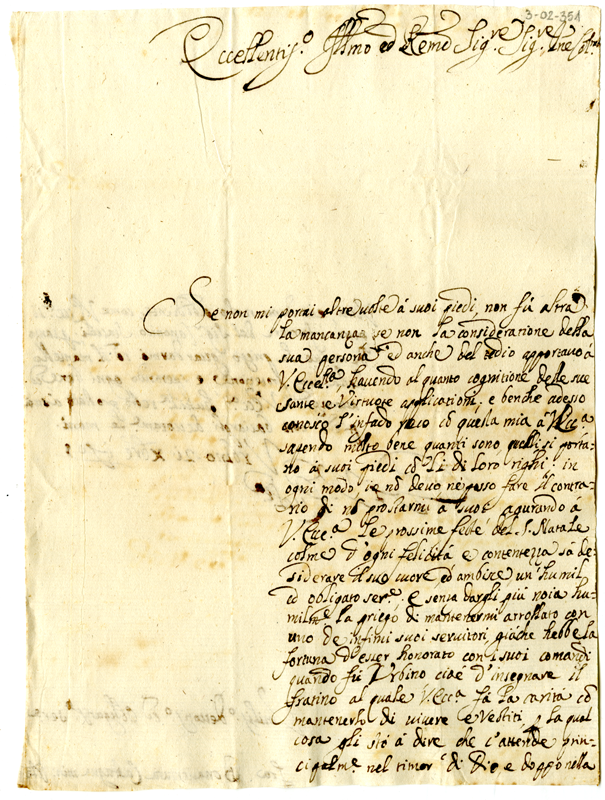 3-02-351
Eccellentis.º Illmo ed Remo Sig.re Sig.re
Se non mi portai altre volte á suoi piedi, non fú altra
la mancanza, se non la consideratione della
sua persona ed anche del tedio apportavo á
V. Ecce.lla, havendo al quanto cognitione delle sue
sante e Virtuose applicationi; e benche adesso
conosco l'infado reco cō questa mia á V. Ecc.a
sapendo molto bene quanti sono quelli si porta-
no á suoi piedi cō li di loro righi; in
ogni modo, ne nō devo ne posso fare il contra-
rio di nō prostarmi á suoi agurando á
V. Ecc.a le prossime feste del S. Natale
colme d'ogni felicitá e contentezza sá de-
siderare il suo cuore ed ambisce un humil
ed obligato ser.e e senza dargli piú noia hu-
milm.e la priego di mantenermi arrollato con
uno de infimi suoi servitori, giache hebbe la
fortuna d'esser honorato con i suoi comandi
quando fú Urbino cioé d'insegnare il
fratino al quale V. Ecc.a fá la caritá cō
mantenerlo di vivere e Vestiti, p la qual
cosa gli stó á dire che s'attende prin-
cipalm.e nel timor.e di Dio, e doppo nella